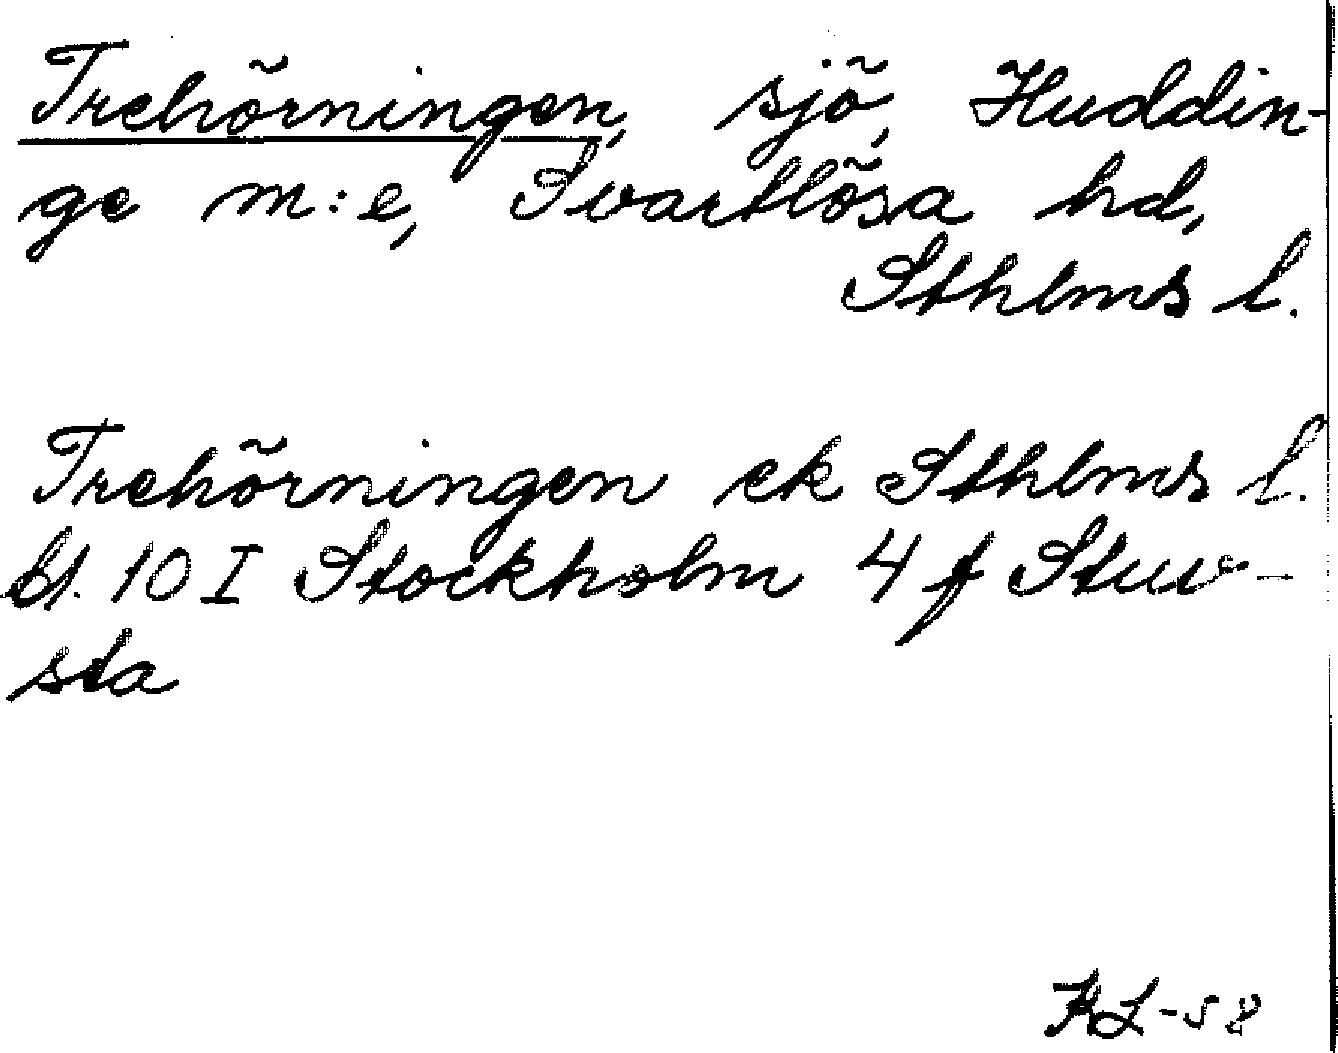 Trehörningen, sjö, Huddin-
ge m:e, Svartlösa hd,
Sthlms l.
Trehörningen ek Sthlms l.
bl. 10 I Stockholm 4 f Stuv-
sta
KL-58